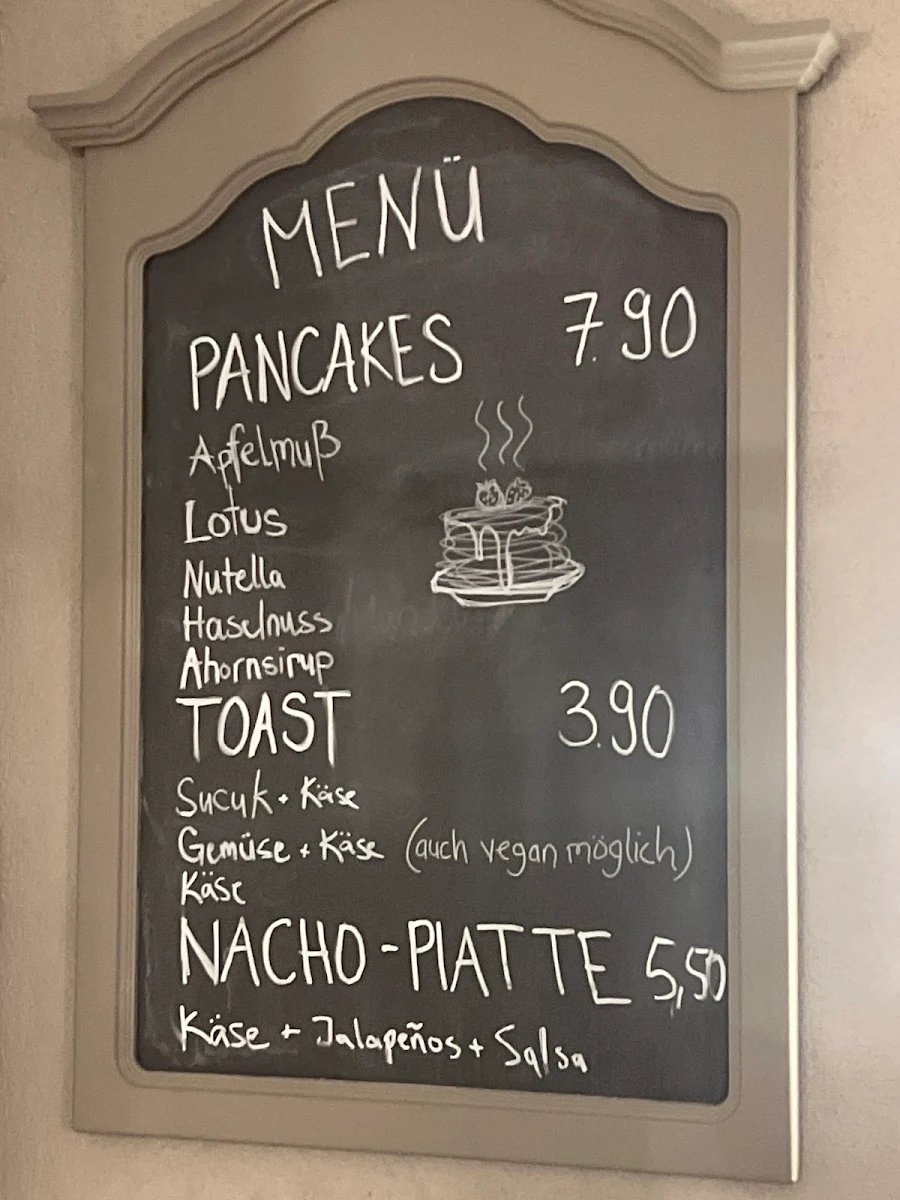 MENÜ
PANCAKES 7.90
Apfelmuß
Lotus
Nutella
Haselnuss
Ahornsirup
TOAST 3.90
Sucuk + Käse
Gemüse + Käse (auch vegan möglich)
Käse
NACHO-PLATTE 5,50
Käse + Jalapeños + Salsa